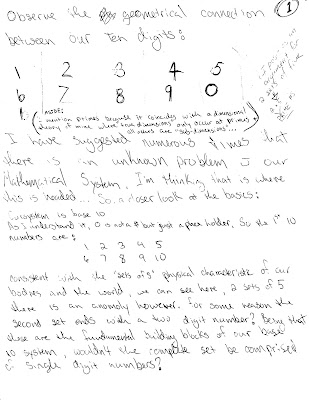 Observe the geometrical connection
between our Ten digits:
1
1 2 3 4 5
6 7 8 9 0
(NOTE:
I mention primes because it coincides with a dimensional
theory of mine where true dimensions only occur at primes
all others are "sub-dimensions"...
I have suggested numerous times that
there is an unknown problem our
Mathematical System, I'm thinking that is where
this is needed... So, a closer look at the basics:
Our system is base 10
As I understand it, 0 is not a # but just a place holder, So the 1st 10
numbers are:
1 2 3 4 5
6 7 8 9 10
consistent with the "sets of 5" physical characteristic of our
bodies and the world, we can see here, 2 sets of 5
there is an anomoly however. For some reason the
second set ends with a two digit number? Being that
these are the fundamental building blocks of our base
10 system, wouldn't the complete set be comprised
of single digit numbers?